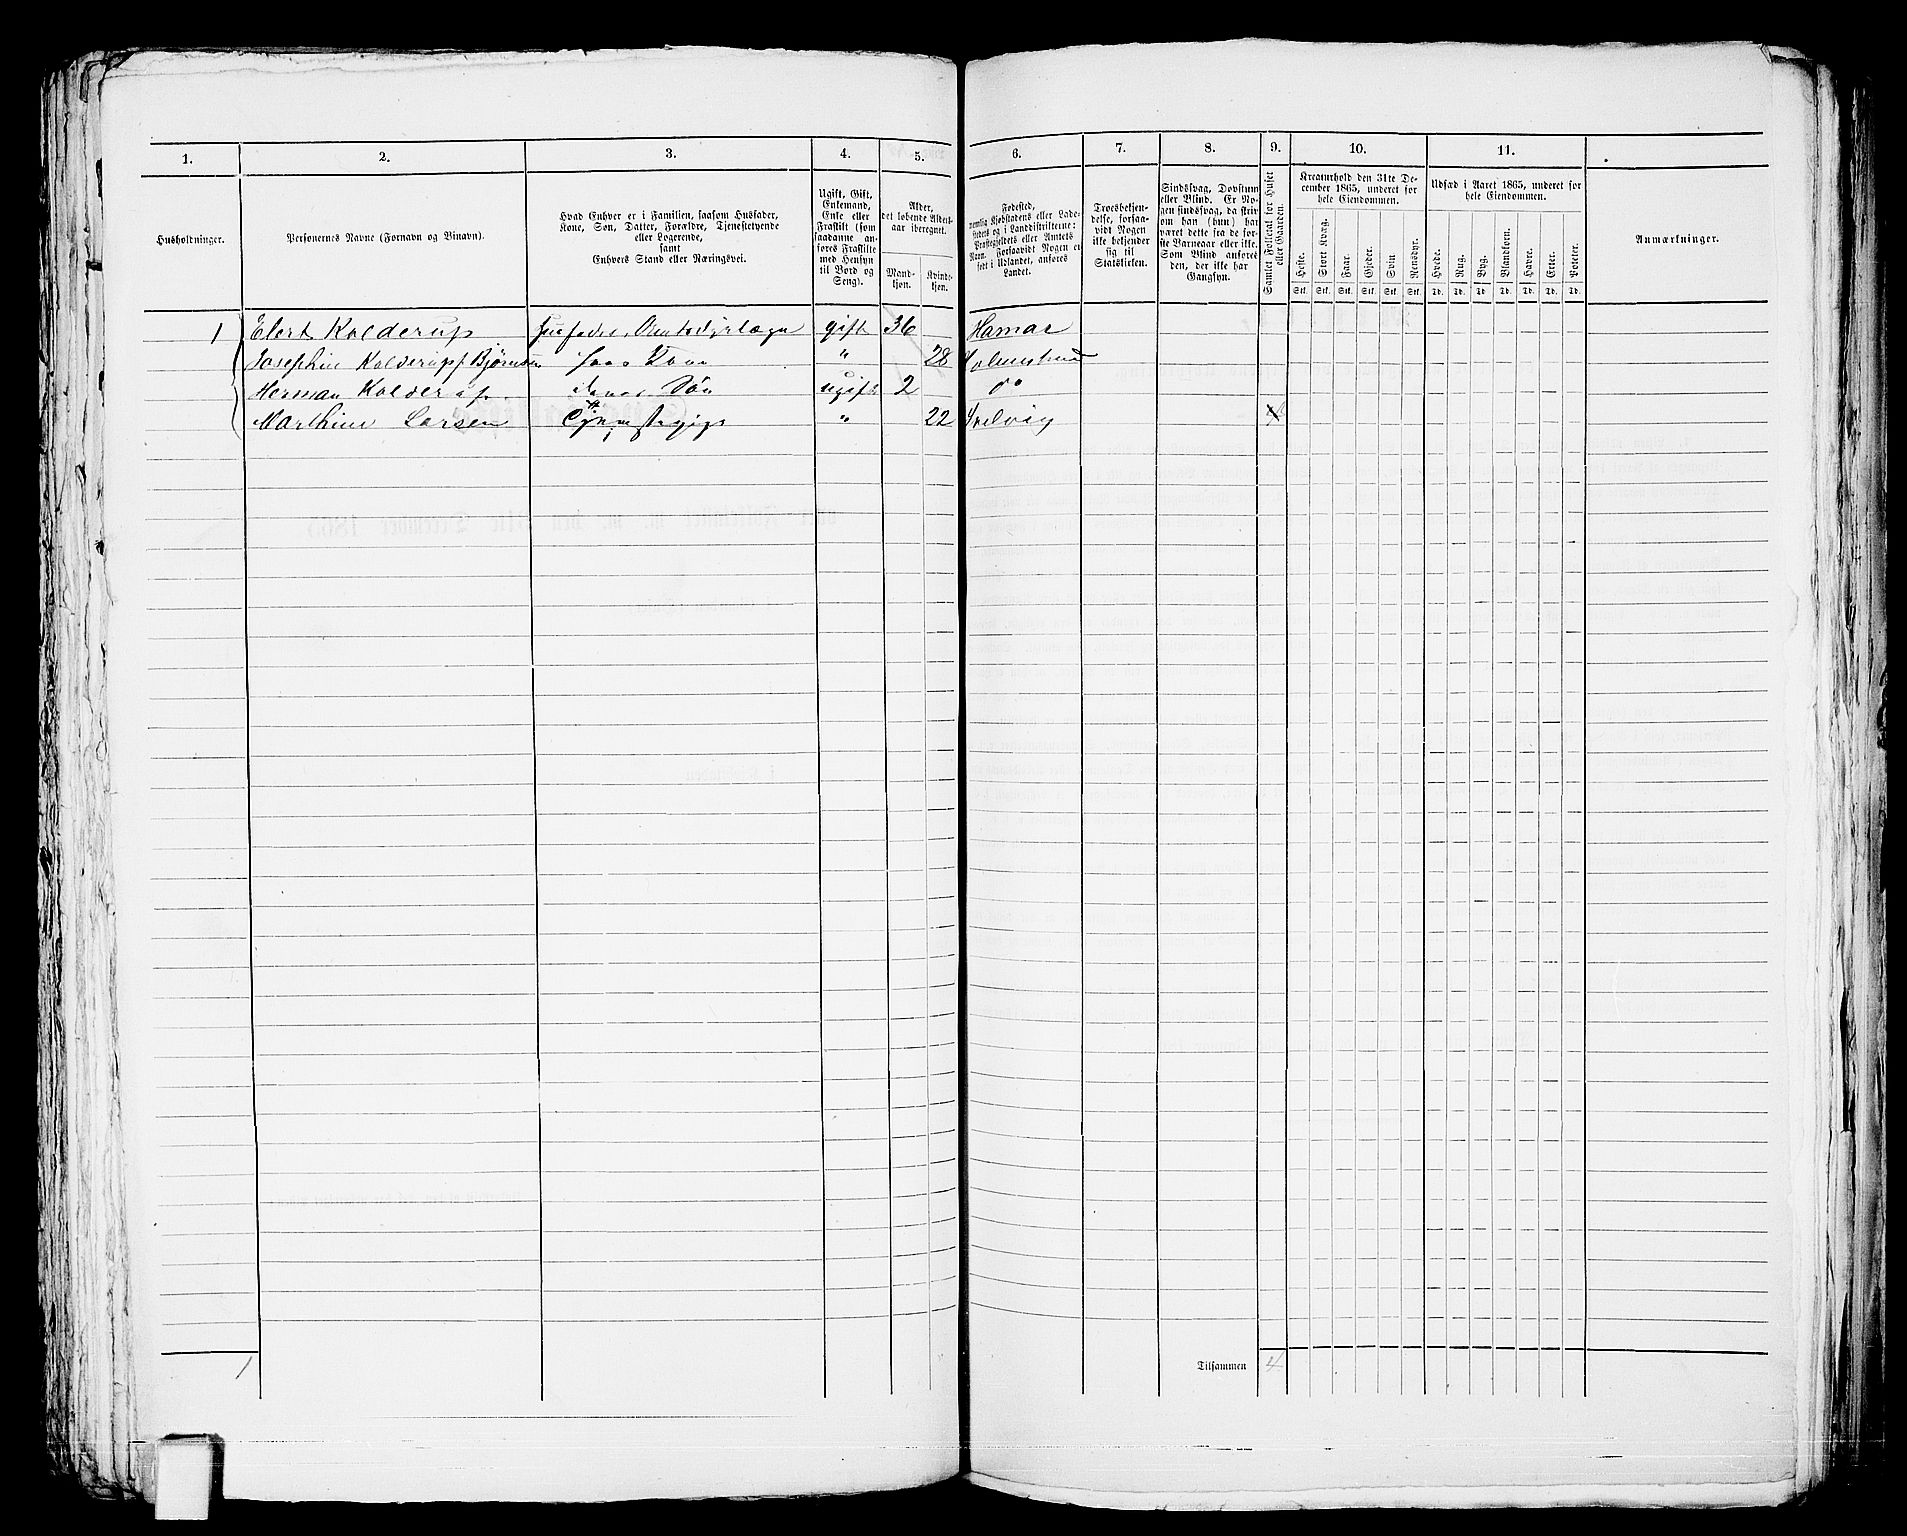 1.
2.
3.
4.
5.
6.
7.
8.
9.
10.
11.
Husholdninger.
Personernes Navne (Fornavn og Binavn).
Hvad Enhver er i Familien, saasom Husfader,
Kone, Søn, Datter, Forældre, Tjenestetyende
eller Logerende,
samt
Enhvers Stand eller Næringsvei.
Ugift, Gift,
Enkemand,
Enke eller
Fraskilt (som
saadanne an-
føres Fraskilte
med Hensyn
til Bord og
Seng).
Alder,
det løbende Alders-
aar iberegnet.
Mand-
kjøn.
Kvind-
kjøn.
Fødested,
nemlig Kjøbstadens eller Lade-
stedets og i Landdistrikterne:
Præstegjeldets eller Amtets
Navn. Forsaavidt Nogen er
født i Udlandet, anføres
Landet.
Troesbekjen-
delse, forsaa-
vidt Nogen
ikke bekjender
sig til
Statskirken.
Sindssvag, Døvstum
eller Blind. Er No-
gen sindssvag, da skriv
om han (hun) har
været dette fra de før-
ste Barneaar eller ikke.
Som Blind anføres
den, der ikke har
Gangsyn.
Samlet Folketal for Huset
eller Gaarden.
Kreaturhold den 31te De-
cember 1865, underet for
hele Eiendommen.
Heste. Stort Kvæg. Faar. Gjeder. Svin Rensdyr.
Stk. Stk. Stk. Stk. Stk. Stk.
Udsæd i Aaret 1865, underet for
hele Eiendommen.
Hvede. Rug. Byg. Blandkorn. Havre. Erter. Poteter.
Td. Td. Td. Td. Td. Td. Td.
Anmærkninger.
1 Elert Kolderup Husfader, gift 36 Hamar
Josephine Kolderup f. Bjørnsen hans Kone " 28 Holmestrand
Herman Kolderup Søn ugift 2 do
Marthine Larsen Tjenestepige " 22 Svelvig 4
1
Tilsammen 4